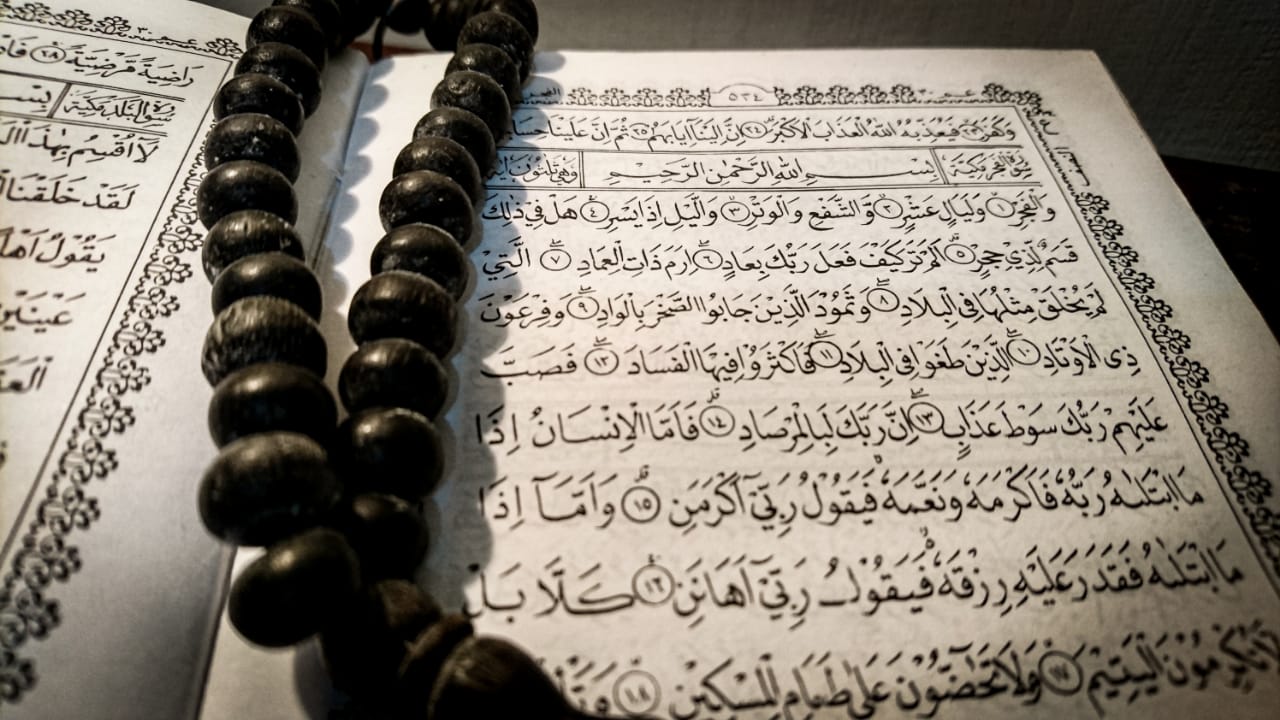 ٥٣٤
وَكَفَرَ ﴿٢٣﴾ فَيُعَذِّبُهُ اللّٰهُ الْعَذَابَ الْاَكْبَرَ ﴿٢٤﴾ اِنَّ اِلَيْنَا اِيَابَهُمْ ﴿٢٥﴾ ثُمَّ اِنَّ عَلَيْنَا حِسَابَ
سُوْرَةُ الْفَجْرِ مَكِّيَّةٌ بِسْمِ اللّٰهِ الرَّحْمٰنِ الرَّحِيْمِ وَهِيَ ثَلٰثُوْنَ اٰيَةً
وَالْفَجْرِ ﴿١﴾ وَلَيَالٍ عَشْرٍ ﴿٢﴾ وَّالشَّفْعِ وَالْوَتْرِ ﴿٣﴾ وَالَّيْلِ اِذَا يَسْرِ ﴿٤﴾ هَلْ فِيْ ذٰلِكَ
قَسَمٌ لِّذِيْ حِجْرٍ ﴿٥﴾ اَلَمْ تَرَ كَيْفَ فَعَلَ رَبُّكَ بِعَادٍ ﴿٦﴾ اِرَمَ ذَاتِ الْعِمَادِ ﴿٧﴾ الَّتِيْ
لَمْ يُخْلَقْ مِثْلُهَا فِى الْبِلَادِ ﴿٨﴾ وَثَمُوْدَ الَّذِيْنَ جَابُوا الصَّخْرَ بِالْوَادِ ﴿٩﴾ وَفِرْعَوْنَ
ذِى الْاَوْتَادِ ﴿١٠﴾ الَّذِيْنَ طَغَوْا فِى الْبِلَادِ ﴿١١﴾ فَاَكْثَرُوْا فِيْهَا الْفَسَادَ ﴿١٢﴾ فَصَبَّ
عَلَيْهِمْ رَبُّكَ سَوْطَ عَذَابٍ ﴿١٣﴾ اِنَّ رَبَّكَ لَبِالْمِرْصَادِ ﴿١٤﴾ فَاَمَّا الْاِنْسَانُ اِذَا
مَا ابْتَلٰىهُ رَبُّهٗ فَاَكْرَمَهٗ وَنَعَّمَهٗ فَيَقُوْلُ رَبِّيْٓ اَكْرَمَنِ ﴿١٥﴾ وَاَمَّآ اِذَا
مَا ابْتَلٰىهُ فَقَدَرَ عَلَيْهِ رِزْقَهٗ فَيَقُوْلُ رَبِّيْٓ اَهَانَنِ ﴿١٦﴾ كَلَّا بَلْ
لَّا تُكْرِمُوْنَ الْيَتِيْمَ ﴿١٧﴾ وَلَا تَحٰٓضُّوْنَ عَلٰى طَعَامِ الْمِسْكِيْنِ ﴿١٨﴾
رَاضِيَةً مَّرْضِيَّةً ﴿٢٨﴾
سُوْرَةُ الْبَلَدِ مَكِّيَّةٌ
لَآ اُقْسِمُ بِهٰذَا
لَقَدْ خَلَقْنَا
يَقُوْلُ
عَيْنَيْنِ